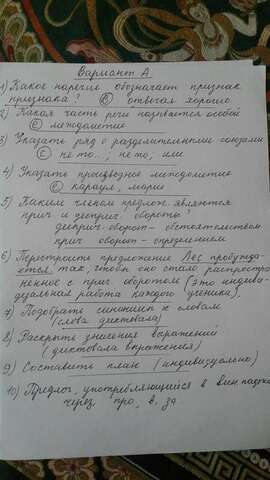 Вариант А
1) Какое наречие обозначает признак
признака? В отвечал хорошо
2) Какая часть речи называется особой
С междометие
3) Указать ряд с разделительными союзами
С не то...; не то, или
4) Указать производное междометие
С караул, марш
5) Каким членом предлож. являются
прич. и дееприч. обороты?
дееприч. оборот - обстоятельством
прич. оборот - определением
6) Перестроить предложение Лес пробужда-
ется так, чтобы оно стало распростра-
ненное с прич. оборотом (это индиви-
дуальная работа каждого ученика).
7) Подобрать синоним к словам
(слова диктовала)
8) Раскрыть значения выражений
(диктовала выражения)
9) Составить план (индивидуально)
10) Предлог, употребляющийся в Вин падеже
через, про, в, за